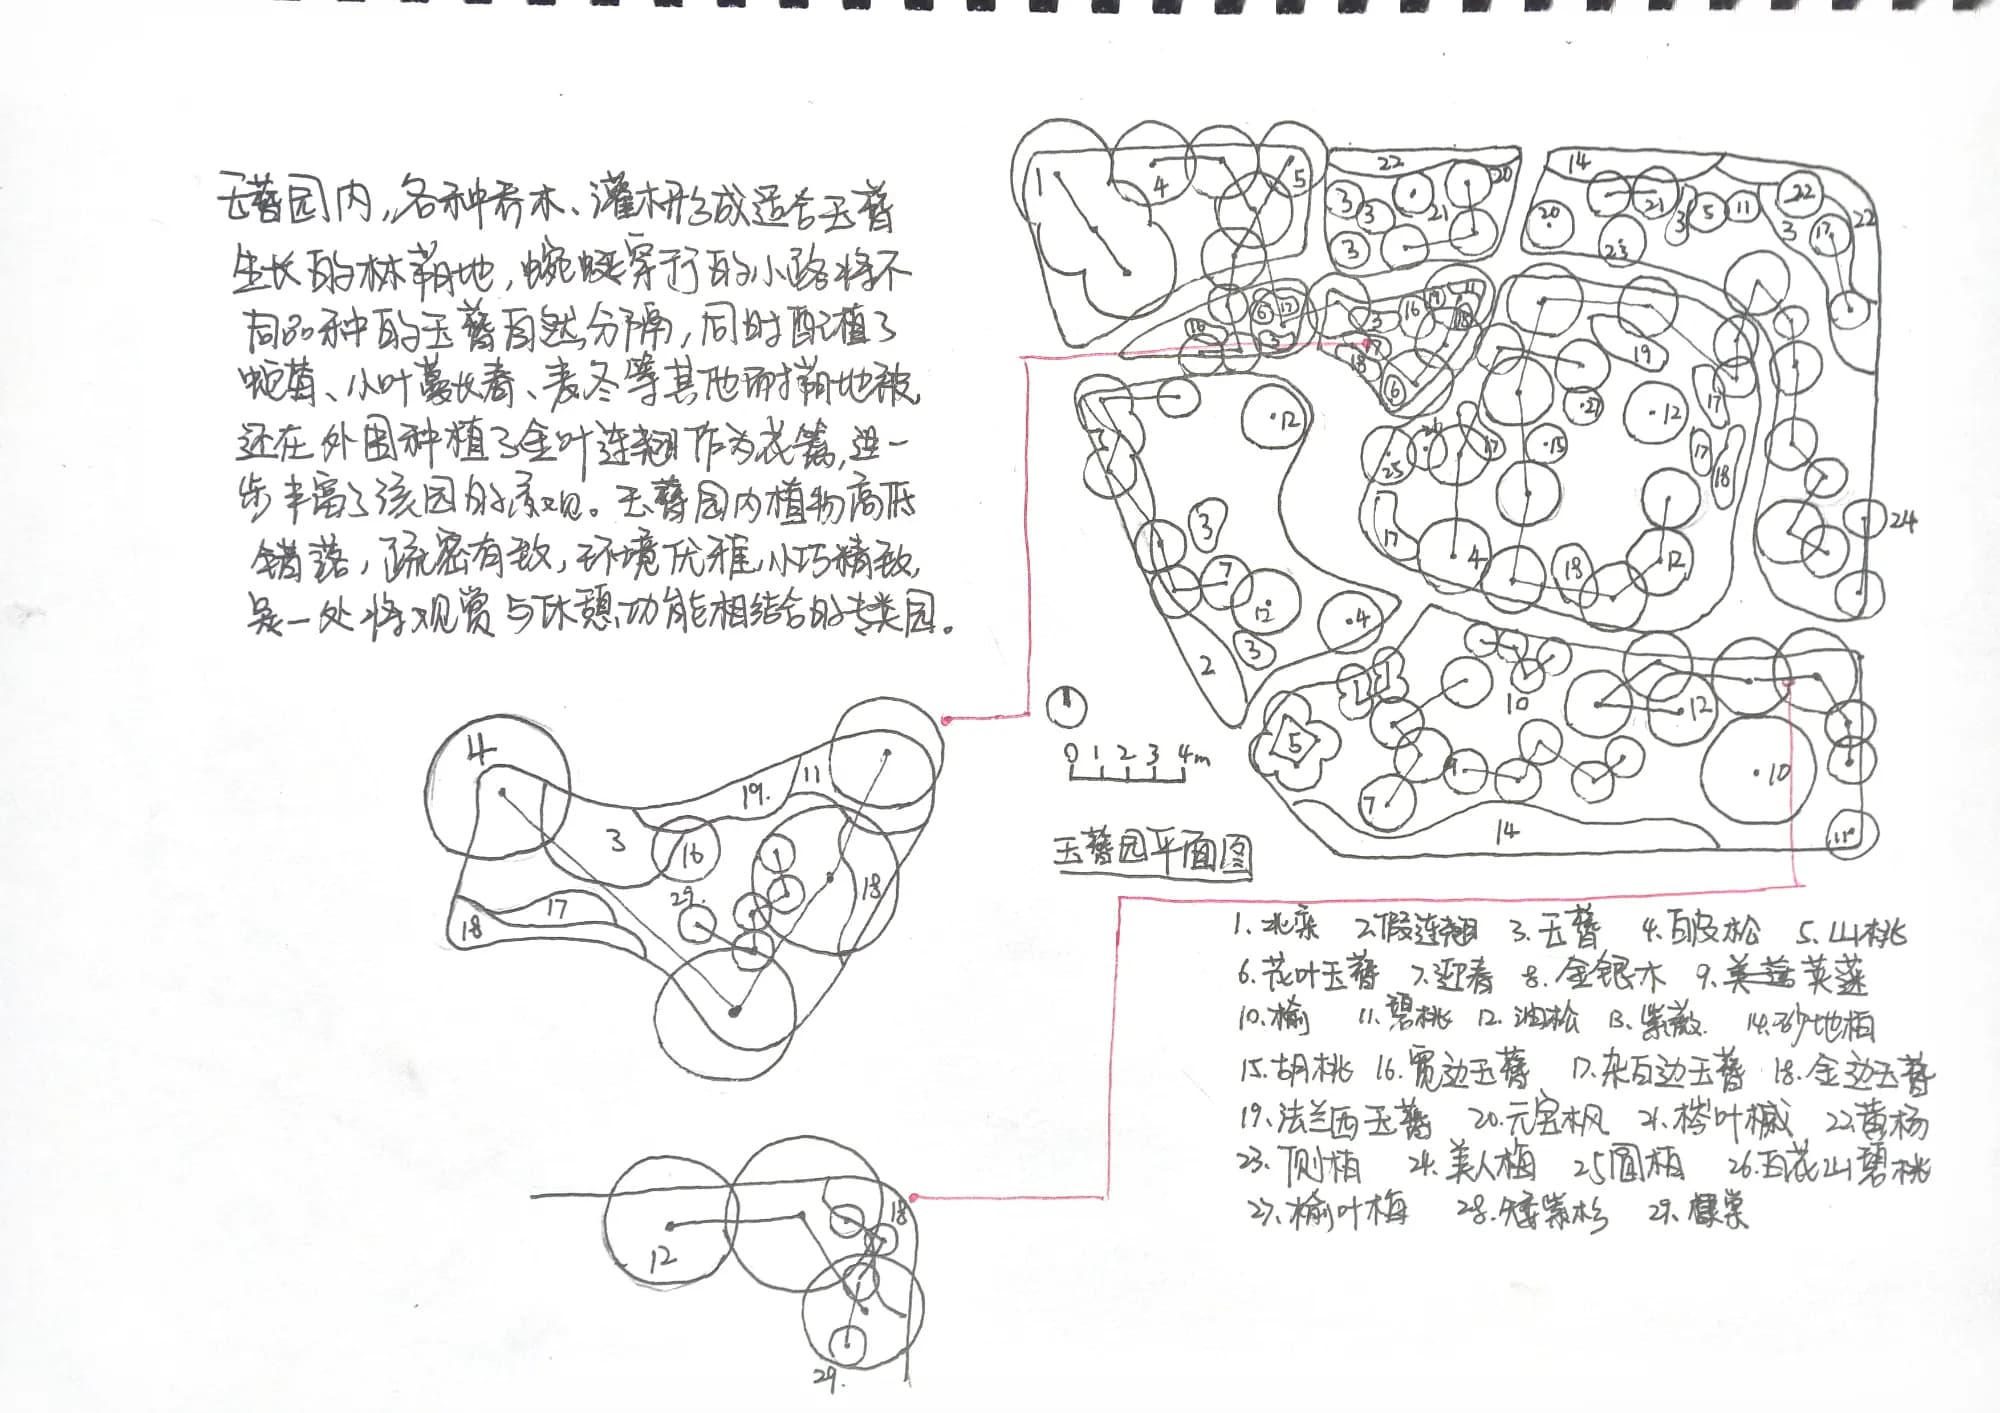 玉簪园内，各种乔木、灌木形成适合玉簪
生长的林荫地，蜿蜒穿行的小路将不
同品种的玉簪自然分隔，同时配植了
蛇莓、小叶蔓长春、麦冬等其他耐荫地被，
还在外围种植了金叶连翘作为花篱，进一
步丰富了该园的景观。玉簪园内植物高低
错落，疏密有致，环境优雅，小巧精致，
是一处将观赏与休憩功能相结合的专类园。
1 4 5 22 20 14
3 3 21 3 20 21 3 5 11 22
23 3 17 22
6 17 16 19 11
16 3 3 18
7 18 6 19
12 27 12 17
3 25 17 15 17 18
3 17 4 18 12 24
7 12 4
2 3
1 1 10 12
5 9 10
7 14 11
0 1 2 3 4m
玉簪园平面图
4 19. 11
3 16 18
29.
17 18
12 18
29.
1. 北栾 2. 假连翘 3. 玉簪 4. 白皮松 5. 山桃
6. 花叶玉簪 7. 迎春 8. 金银木 9. 荚蒾
10. 榆 11. 碧桃 12. 油松 13. 紫薇 14. 砂地柏
15. 胡桃 16. 宽边玉簪 17. 杂白边玉簪 18. 金边玉簪
19. 法兰西玉簪 20. 元宝枫 21. 梣叶槭 22. 黄杨
23. 侧柏 24. 美人梅 25 圆柏 26. 白花山碧桃
27. 榆叶梅 28. 矮紫杉 29. 棣棠